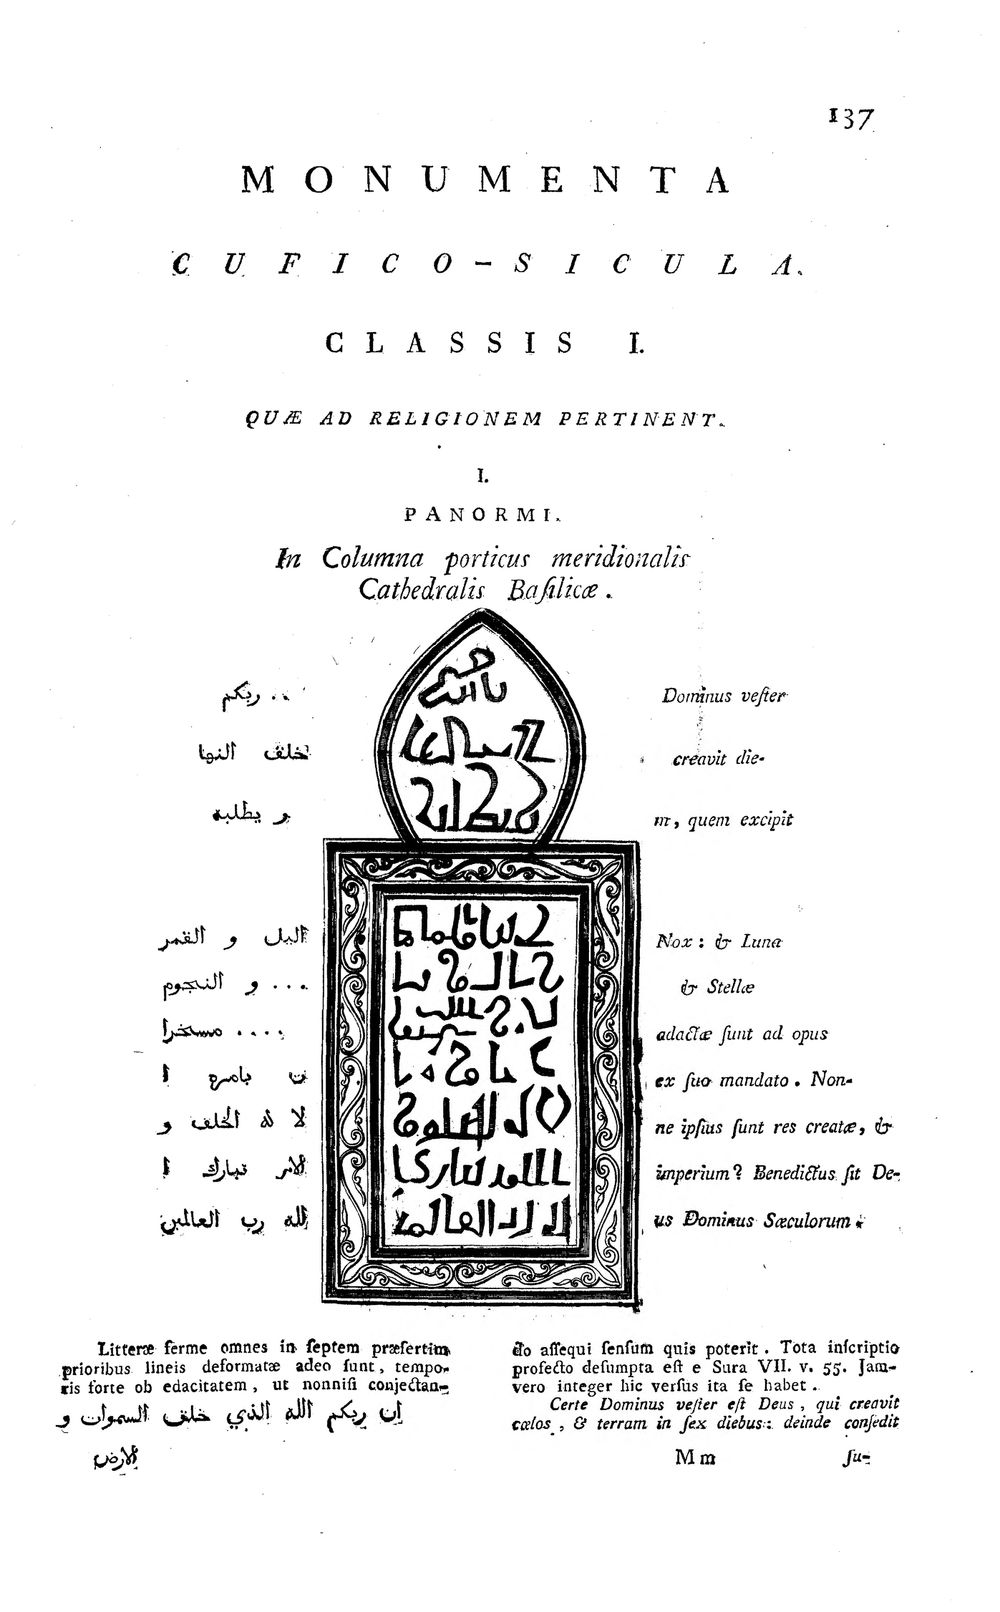 137
MONUMENTA
CUFICO-SICULA.
CLASSIS I.
QUÆ AD RELIGIONEM PERTINENT.
I.
PANORMI.
In Columna porticus meridionalis
Cathedralis Baſilicæ .
.. ربكم
خلف النها
و يطلبه
اليل و القمر
... و النجوم
.... مسخرا
ن بامره ا
لا له الخلف و
الامر تبارك ا
لله رب العالمين
Dominus veſter
creavit die-
m, quem excipit
Nox : & Luna
& Stellæ
adactæ ſunt ad opus
ex ſuo mandato . Non-
ne ipſius ſunt res creatæ, &
imperium? Benedictus ſit De-
us Dominus Sæculorum.
Litteræ ferme omnes in ſeptem præſertim
prioribus lineis deformatæ adeo ſunt, tempo-
ris forte ob edacitatem, ut nonniſi conjectan-
do aſſequi ſenſum quis poterit . Tota inſcriptio
profecto deſumpta eſt e Sura VII. v. 55. Jam-
vero integer hic verſus ita ſe habet .
ان ربكم الله الذي خلف السموات و
الارض
Certe Dominus veſter eſt Deus , qui creavit
cælos , & terram in ſex diebus: deinde conſedit
Mm
ſu-